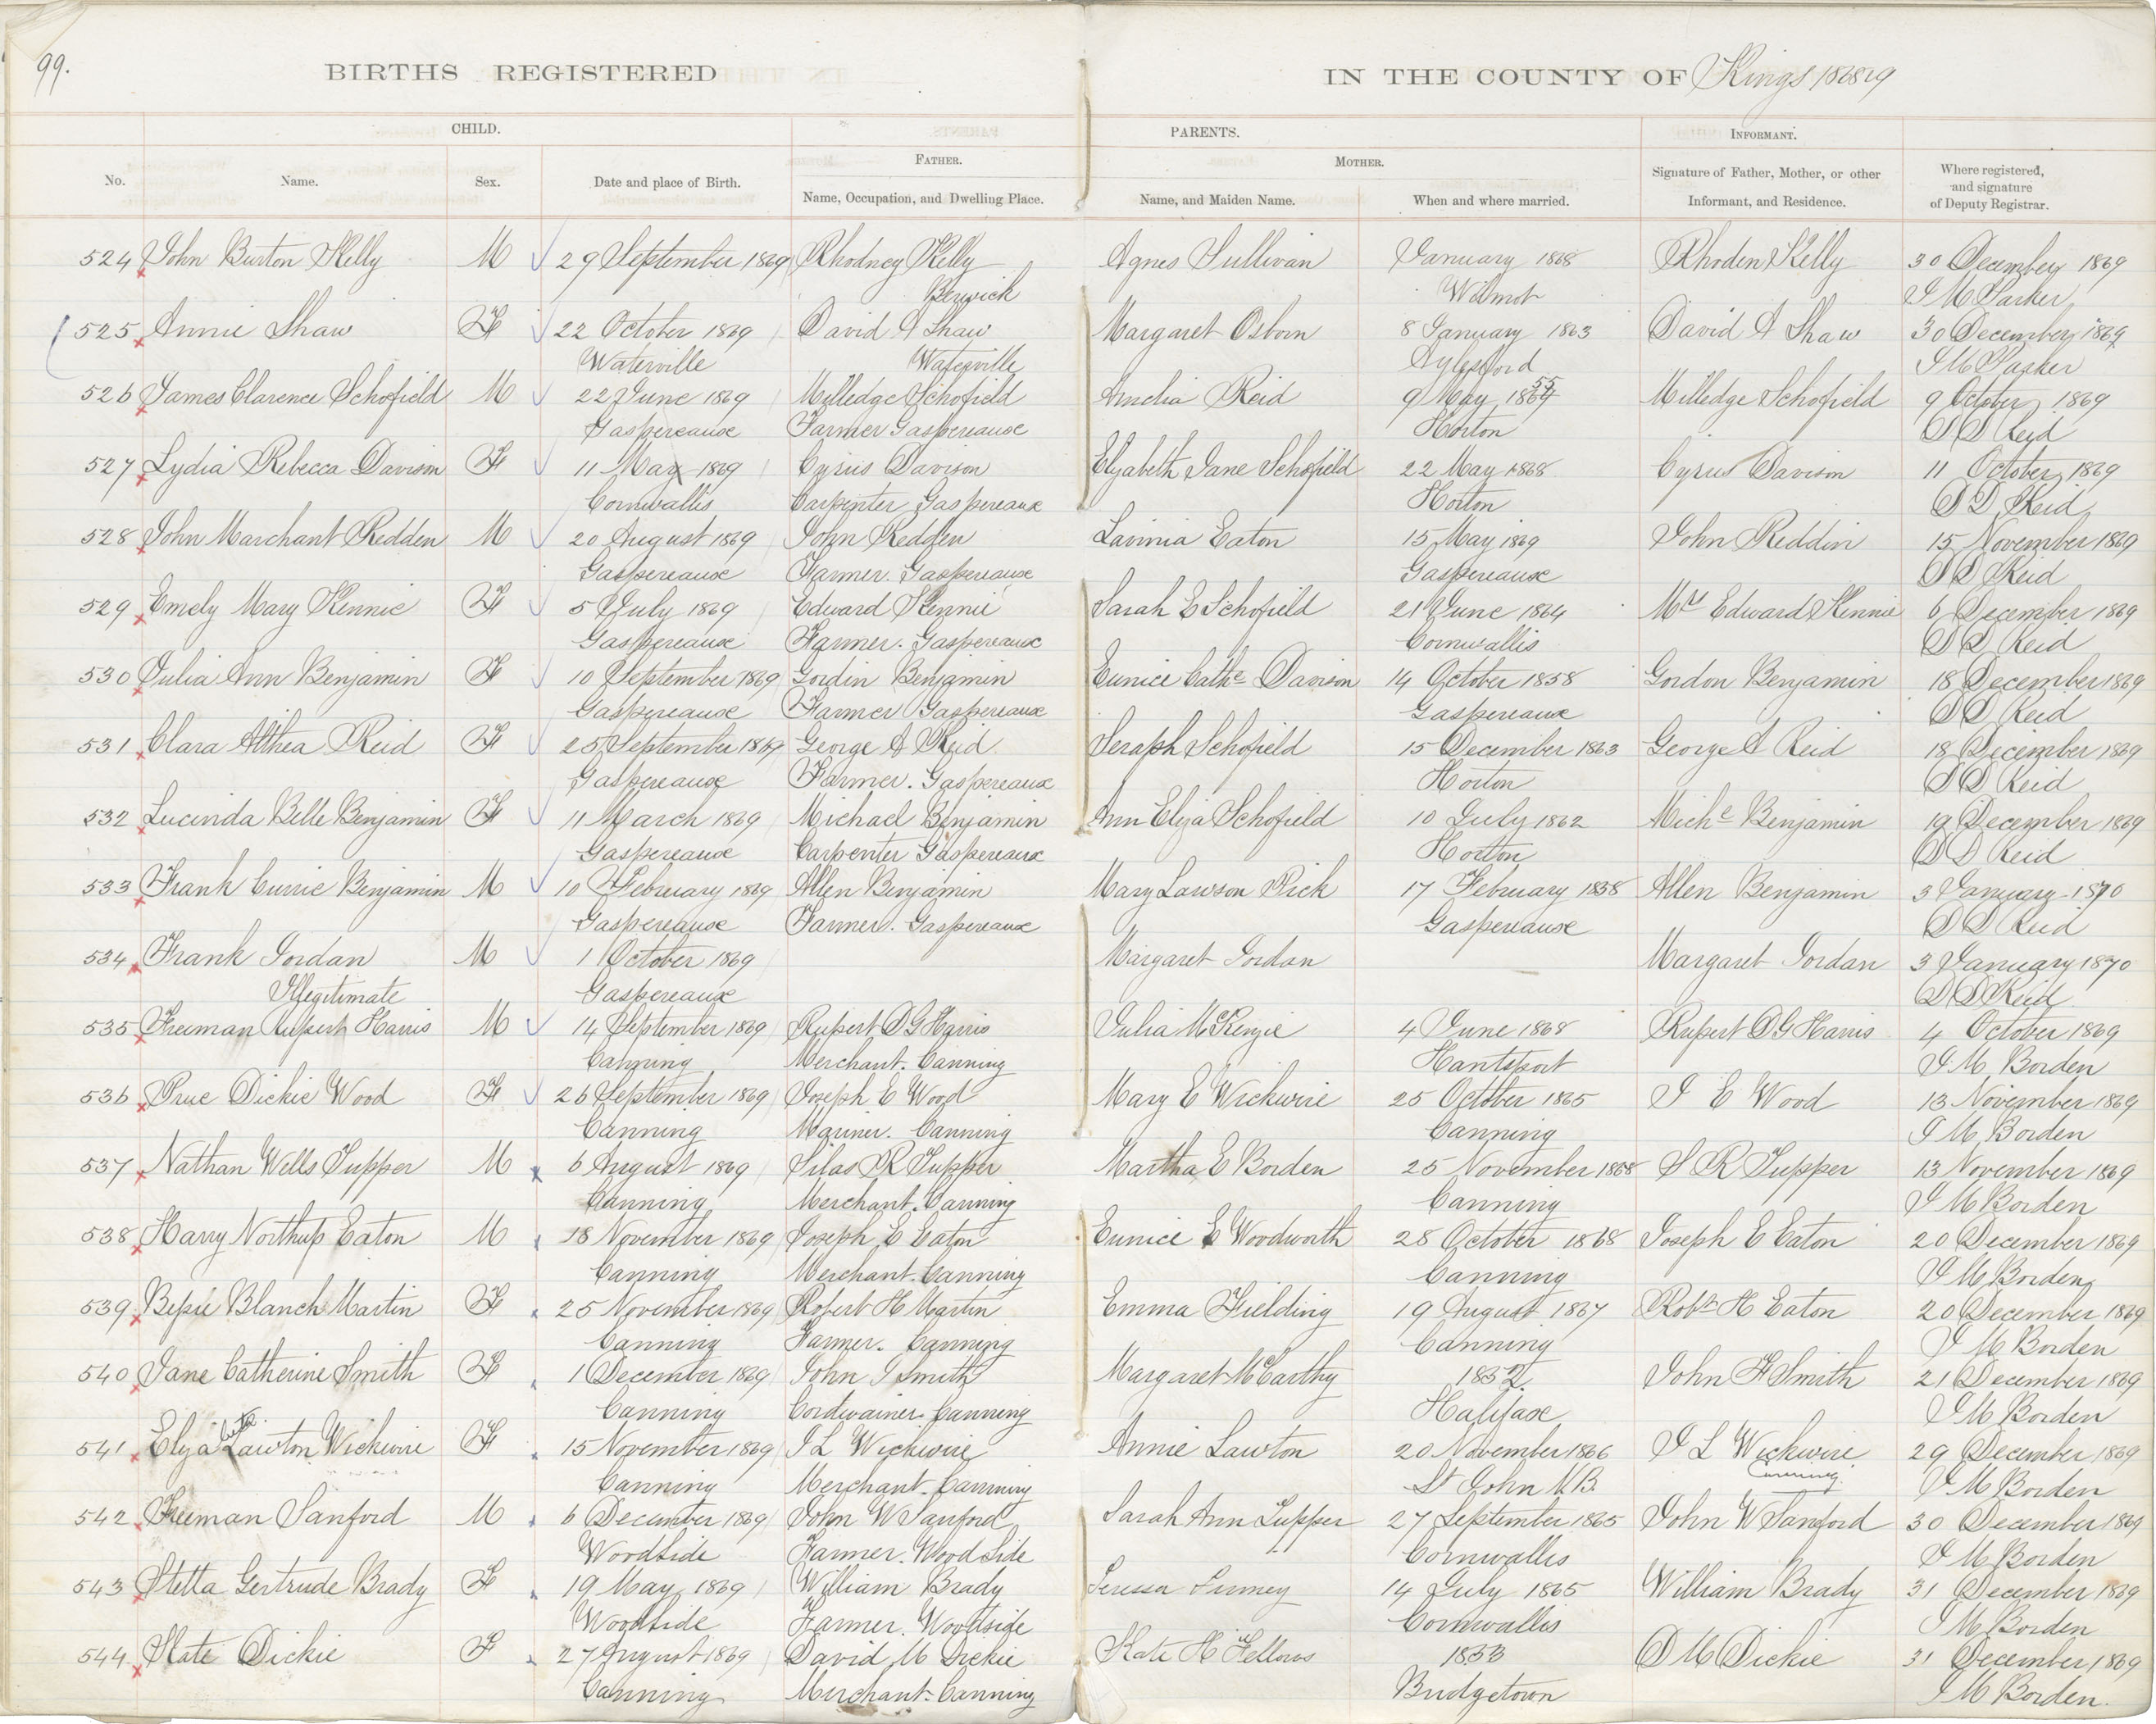 99.
BIRTHS REGISTERED IN THE COUNTY OF Kings 1868 9
CHILD. PARENTS. INFORMANT.
FATHER. MOTHER.
No. Name. Sex. Date and place of Birth. Name, Occupation, and Dwelling Place. Name, and Maiden Name. When and where married. Signature of Father, Mother, or other Informant, and Residence. Where registered, and signature of Deputy Registrar.
524 John Burton Kelly M 29 September 1869 Rhodney Kelly Agnes Sullivan January 1868 Rhoden Kelly 30 December 1869
Berwick Wilmot I M Parker
525 Annie Shaw F 22 October 1869 David A Shaw Margaret Osborn 8 January 1863 David A Shaw 30 December 1869
Waterville Waterville Aylesford I M Parker
526 James Clarence Schofield M 22 June 1869 Milledge Schofield Amelia Reid 9 May 1855 Milledge Schofield 9 October 1869
Gaspereaux Farmer Gaspereaux Horton S D Reid
527 Lydia Rebecca Davison F 11 May 1869 Cyrus Davison Elizabeth Jane Schofield 22 May 1868 Cyrus Davison 11 October 1869
Cornwallis Carpenter Gaspereaux Horton S D Reid
528 John Marchant Redden M 20 August 1869 John Redden Lavinia Eaton 15 May 1869 John Reddin 15 November 1869
Gaspereaux Farmer. Gaspereaux Gaspereaux S D Reid
529 Emely Mary Kennie F 5 July 1869 Edward Kennie Sarah E Schofield 21 June 1864 Mrs Edward Kennie 6 December 1869
Gaspereaux Farmer. Gaspereaux Cornwallis S D Reid
530 Julia Ann Benjamin F 10 September 1869 Gordin Benjamin Eunice Cathe Davison 14 October 1858 Gordon Benjamin 18 December 1869
Gaspereaux Farmer Gaspereaux Gaspereaux S D Reid
531 Clara Althea Reid F 25 September 1869 George A Reid Seraph Schofield 15 December 1863 George A Reid 18 December 1869
Gaspereaux Farmer. Gaspereaux Horton S D Reid
532 Lucinda Belle Benjamin F 11 March 1869 Michael Benjamin Ann Eliza Schofield 10 July 1862 Miche Benjamin 19 December 1869
Gaspereaux Carpenter Gaspereaux Horton S D Reid
533 Frank Currie Benjamin M 10 February 1869 Allen Benjamin Mary Lawson Rick 17 February 1858 Allen Benjamin 3 January 1870
Gaspereaux Farmer. Gaspereaux Gaspereaux S D Reid
534 Frank Jordan M 1 October 1869 Margaret Jordan Margaret Jordan 3 January 1870
Illegitimate Gaspereaux S D Reid
535 Freeman Rupert Harris M 14 September 1869 Rupert D G Harris Julia McKenzie 4 June 1868 Rupert D G Harris 4 October 1869
Canning Merchant. Canning Hantsport I M Borden
536 Prue Dickie Wood F 26 September 1869 Joseph E Wood Mary E Wickwire 25 October 1865 J E Wood 13 November 1869
Canning Mariner. Canning Canning I M Borden
537 Nathan Wells Tupper M 6 August 1869 Silas R Tupper Martha E Borden 25 November 1868 S R Tupper 13 November 1869
Canning Merchant. Canning Canning I M Borden
538 Harry Northup Eaton M 18 November 1869 Joseph E Eaton Eunice E Woodworth 28 October 1868 Joseph E Eaton 20 December 1869
Canning Merchant. Canning Canning I M Borden
539 Bessie Blanch Martin F 25 November 1869 Robert H Martin Emma Fielding 19 August 1867 Robt H Eaton 20 December 1869
Canning Farmer. Canning Canning I M Borden
540 Jane Catherine Smith F 1 December 1869 John I Smith Margaret McCarthy 1852 John H Smith 21 December 1869
Canning Cordwainer. Canning Halifax I M Borden
541 Eliza Lawton Wickwire F 15 November 1869 J L Wickwire Annie Lawton 20 November 1866 J L Wickwire 29 December 1869
Canning Merchant. Canning St John N.B. Canning I M Borden
542 Freeman Sanford M 6 December 1869 John W Sanford Sarah Ann Tupper 27 September 1865 John W Sanford 30 December 1869
Woodside Farmer. Wood Side Cornwallis I M Borden
543 Stetta Gertrude Brady F 19 May 1869 William Brady Teressa 14 July 1865 William Brady 31 December 1869
Woodside Farmer. Woodside Cornwallis I M Borden
544 Kate Dickie F 27 August 1869 David M Dickie Kate H Fellows 1853 D M Dickie 31 December 1869
Canning Merchant. Canning Bridgetown I M Borden.